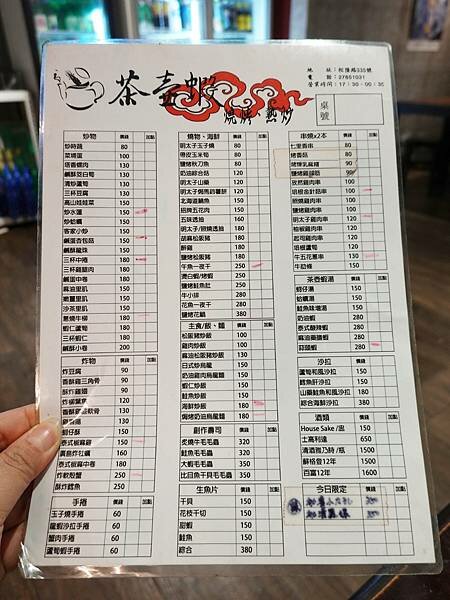 茶壺蝦
燒烤、熱炒
地 址:松隆路335號
電 話:27651031
營業時間:17:30-00:30
桌號
炒物 價錢 加點
炒時蔬 80
菜埔蛋 100
塔香螺肉 130
鹹酥茭白筍 130
清炒蘆筍 130
三杯豆腐 130
高山娃娃菜 150
炒水蓮 150
炒蛤蠣 150
客家小炒 150
鹹蛋杏包菇 150
鹹酥龍珠 150
三杯中捲 180
三杯雞腿肉 180
鹹蛋中卷 180
麻油里肌 150
嫩薑里肌 150
沙茶里肌 150
蔥燒牛柳 180
蝦仁蘆筍 180
三杯蝦仁 180
鹹酥小卷 200
炸物 價錢 加點
炸豆腐 90
香酥雞三角骨 90
酥炸雞翅 90
炸柳葉魚 120
香酥雞軟骨 130
150
蚵仔酥 150
泰式椒麻雞 150
廣島炸牡蠣 150
泰式椒麻中卷 180
炸軟殼蟹 250
酥炸鱈魚 250
手捲 價錢 加點
玉子燒手捲 60
龍蝦沙拉手捲 60
蟹肉手捲 60
蘆筍蝦手捲 60
燒物、海鮮 價錢 加點
明太子玉子燒 80
帶皮玉米筍 80
鹽烤秋刀魚 80
奶油綜合菇 120
明太子山藥 120
明太子焗馬鈴薯餅 120
北海道鯖魚 150
招牌五花肉 150
五味透抽 160
明太子/照燒透抽 160
胡麻松阪豬 180
醉雞 180
鹽烤松阪豬 180
午魚一夜干 250
清白蝦/烤蝦 250
鹽烤鮭魚肚 250
牛小排 280
花魚一夜干 280
鹽烤花鯛 380
主食/飯、麵 價錢 加點
松阪豬炒飯 100
雞肉炒飯 100
麻油松阪豬炒飯 120
日式炒烏龍 150
奶油雞肉烏龍麵 150
蝦仁炒飯 150
鮭魚炒飯 150
海鮮炒飯 180
焗烤奶油烏龍麵 180
創作壽司 價錢 加點
炙燒牛毛毛蟲 350
鮭魚毛毛蟲 350
大蝦毛毛蟲 350
比目魚干貝毛毛蟲 350
生魚片 價錢 加點
干貝 150
花枝千切 150
甜蝦 150
鮭魚 150
綜合 380
串燒x2本 價錢 加點
七里香串 80
烤香菇 80
烤爆乳麻糬 90
鹽烤雞腿菇 90
孜然雞肉串 100
培根金針菇串 100
照燒雞肉串 100
鹽烤雞肉串 100
明太子雞肉串 120
柚椒雞肉串 120
起司雞肉串 120
培根蘆筍 120
牛五花蔥串 130
牛肋條 150
茶壺蝦湯 價錢 加點
蚵仔湯 150
蛤蠣湯 150
鮭魚味噌湯 150
奶油蝦 280
泰式酸辣蝦 280
麻油藥膳蝦 280
蒜頭蝦 280
沙拉 價錢 加點
蘆筍和風沙拉 120
鱈魚肝沙拉 180
山藥鮭魚和風沙拉 180
綜合海鮮沙拉 380
酒類 價錢 加點
House Sake/盅 150
士高利達 650
清酒雅乃詩/瓶 1500
蘇格登12年 1500
百富12年 1600
今日限定 價錢 加點